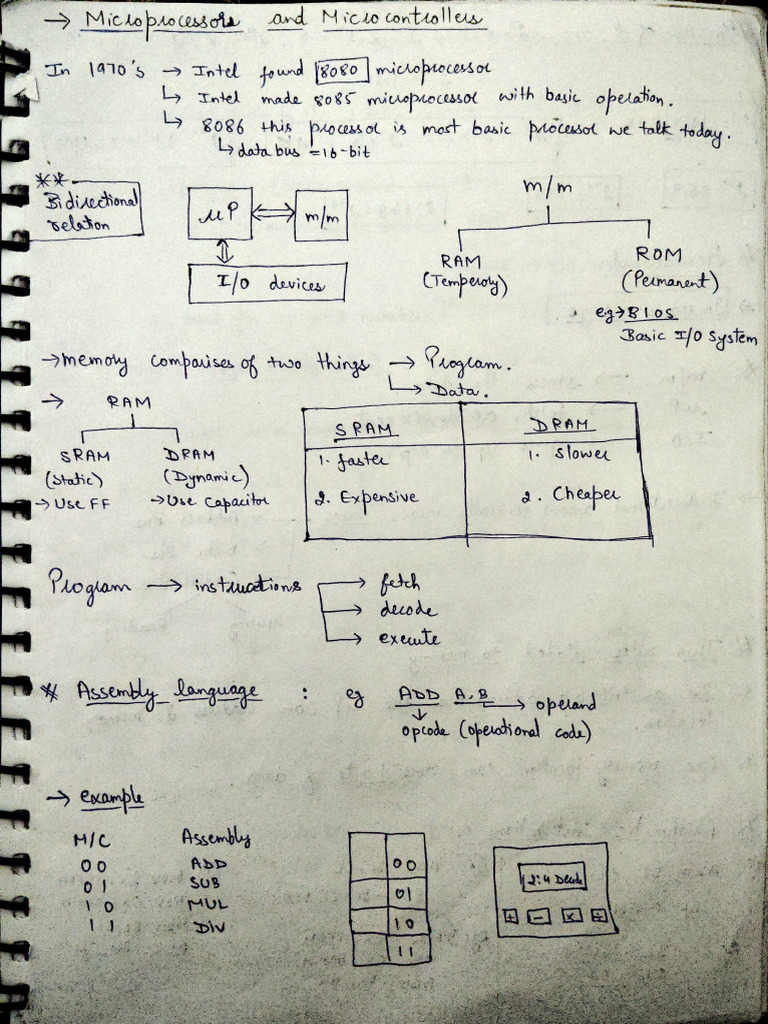 → Microprocessors and Microcontrollers
In 1970's → Intel found 8080 microprocessor
↳ Intel made 8085 microprocessor with basic operation.
↳ 8086 this processor is most basic processor we talk today.
↳ data bus = 16-bit
**
Bidirectional relation
μP ⇔ m/m
⇕
I/O devices
m/m
RAM (Temperoly)
ROM (Permanent)
eg → BIOS
Basic I/O System
→ memory comprises of two things → Program.
↳ Data.
→ RAM
SRAM (Static) → Use FF
DRAM (Dynamic) → Use Capacitor
SRAM DRAM
1. faster 1. Slower
2. Expensive 2. Cheaper
Program → instructions → fetch
→ decode
→ execute
* Assembly language : eg ADD A, B → operand
↓
opcode (operational code)
→ example
M/C Assembly
00 ADD
01 SUB
10 MUL
11 Div
00
01
10
11
2:4
+ − × ÷